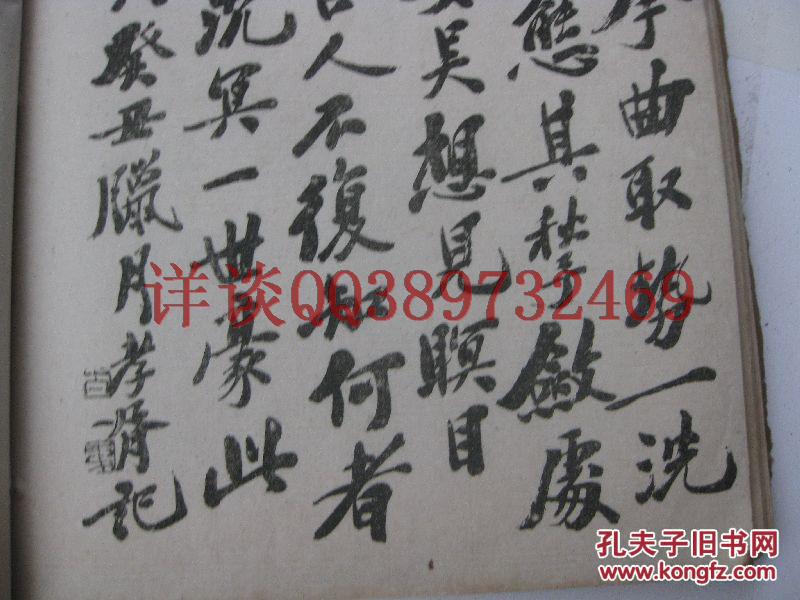 曲取勢一洗
態其秘?斂處
吴想見瞑目
人不復知何者
沉冥一世豪此
癸丑臘月孝胥記
详谈QQ389732469
孔夫子旧书网
www.kongfz.com